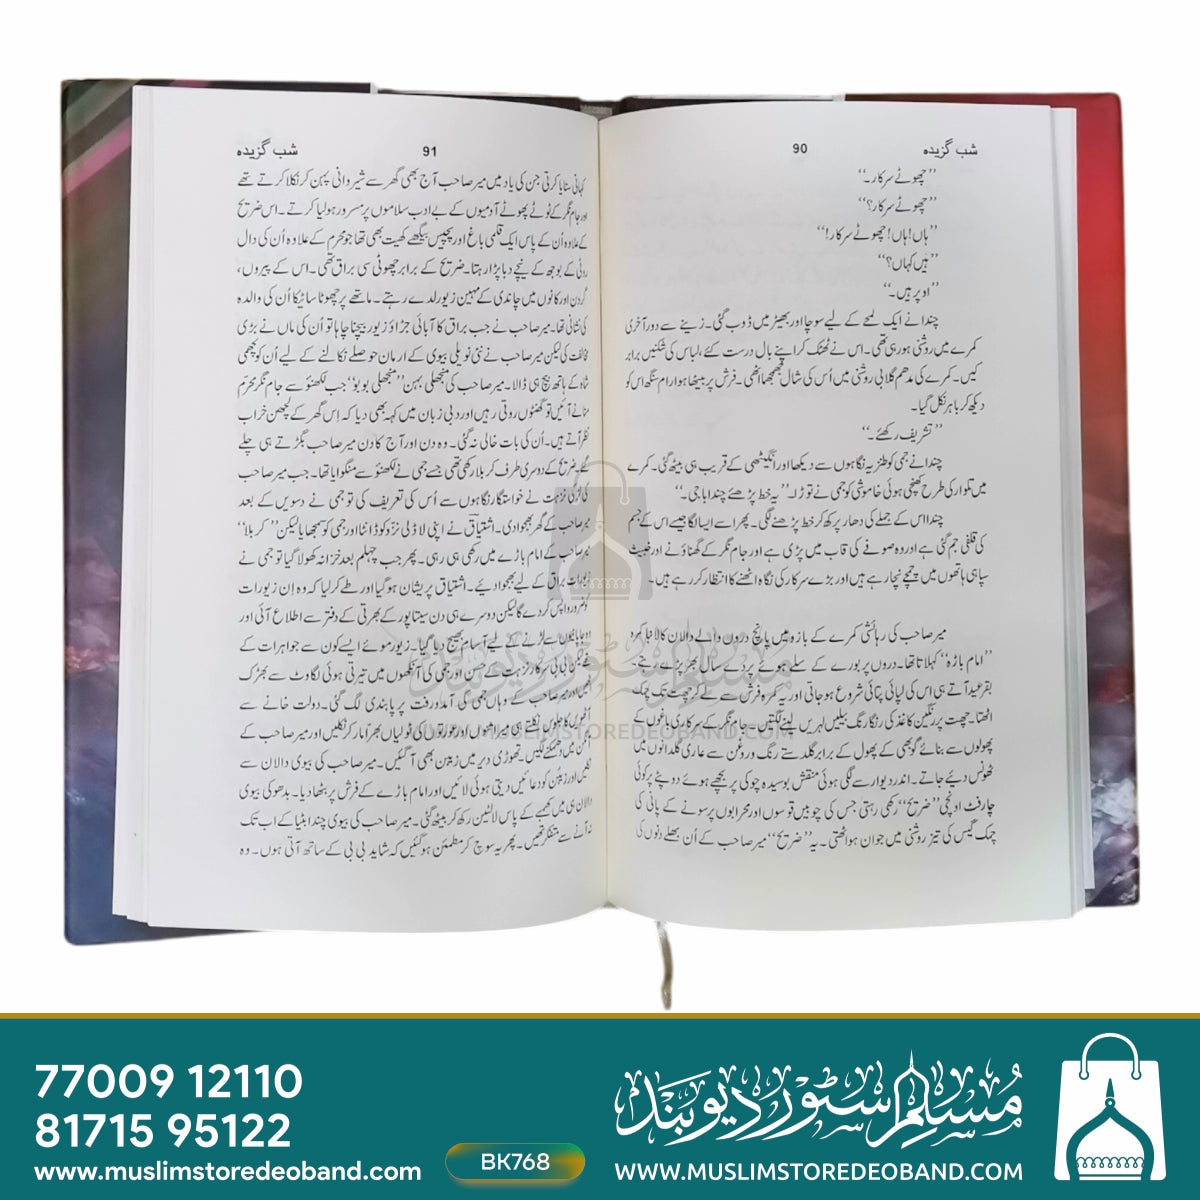 شب گزیدہ
90
’’چھوٹے سرکار۔‘‘
’’چھوٹے سرکار؟‘‘
’’ہاں!ہاں! چھوٹے سرکار!‘‘
’’ہیں کہاں؟‘‘
’’اوپر ہیں۔‘‘
چندا نے ایک لمحے کے لیے سوچا اور بھیڑ میں ڈوب گئی۔ زینے سے دور آخری
کمرے میں روشنی ہو رہی تھی۔ اس نے ٹھٹک کر اپنے بال درست کئے، لباس کی شکنیں برابر
کیں۔ کمرے کی مدھم گلابی روشنی میں اُس کی شال جھمجھا اٹھی۔ فرش پر بیٹھا ہوا رام سنگھ اس کو
دیکھ کر باہر نکل گیا۔
’’تشریف رکھئے۔‘‘
چندا نے جمی کو طنزیہ نگاہوں سے دیکھا اور انگیٹھی کے قریب ہی بیٹھ گئی۔ کمرے
میں تلوار کی طرح کھنچی ہوئی خاموشی کو جمی نے توڑا۔ ’’یہ خط پڑھئے چندا باجی۔‘‘
چندا اس کے جملے کی دھار پرکھ کر خط پڑھنے لگی۔ پھر اسے ایسا لگا جیسے اس کے جسم
کی قلفی جم گئی ہے اور وہ صوفے کی قاب میں پڑی ہے اور جام نگر کے گھناؤنے اور خبیث
سپاہی ہاتھوں میں چمچے نچا رہے ہیں اور بڑے سرکار کی نگاہ اٹھنے کا انتظار کر رہے ہیں۔
میر صاحب کی رہائشی کمرے کے بازو میں پانچ دروں والے دالان کا لانبا کمرہ
’’امام باڑہ‘‘ کہلاتا تھا۔ دروں پر بورے کے سلے ہوئے پردے سال بھر پڑے رہتے۔
بقرعید آتے ہی اس کی لپائی پتائی شروع ہو جاتی اور یہ کمرہ فرش سے لے کر چھت تک چمک
اٹھتا۔ چھت پر رنگین کاغذ کی رنگا رنگ بیلیں لہریں لینے لگتیں۔ جام نگر کے سرکاری باغوں کے
پھولوں سے بنائے گوبھی کے پھول کے برابر گلدستے رنگ و روغن سے عاری گلدانوں میں
ٹھونس دیئے جاتے۔ اندر دیوار سے لگی ہوئی منقش بوسیدہ چوکی پر بچھے ہوئے دوپٹے پر کوئی
چار فٹ اونچی ’’ضریح‘‘ رکھی رہتی جس کی چوبیں قوسوں اور محرابوں پر سونے کے پانی کی
چمک گیس کی تیز روشنی میں جوان ہو اٹھتی۔ یہ ’’ضریح‘‘ میر صاحب کے اُن بھلے دنوں کی
شب گزیدہ
91
کہانی سنایا کرتی جن کی یاد میں میر صاحب آج بھی گھر سے شیروانی پہن کر نکلا کرتے تھے
اور جام نگر کے ٹوٹے پھوٹے آدمیوں کے بے ادب سلاموں پر مسرور ہو لیا کرتے۔ اس ضریح
کے علاوہ اُن کے پاس ایک قلمی باغ اور پچیس بیگھے کھیت بھی تھا جو محرم کے علاوہ اُن کی دال
روٹی کے بوجھ کے نیچے دبا پڑا رہتا۔ ضریح کے برابر چھوٹی سی براق تھی۔ اس کے پیروں،
گردن اور کانوں میں چاندی کے مہین زیور لدے رہتے۔ ماتھے پر چھوٹا سا ٹیکا اُن کی والدہ
کی نشانی تھا۔ میر صاحب نے جب براق کا آبائی جڑاؤ زیور بیچنا چاہا تو اُن کی ماں نے بڑی
مخالفت کی لیکن میر صاحب نے نئی نویلی بیوی کے ارمان حوصلے نکالنے کے لیے اُن کو کچھی
شاہ کے ہاتھ بیچ ہی ڈالا۔ میر صاحب کی منجھلی بہن ’’منجھلی بوبو‘‘ جب لکھنؤ سے جام نگر محرم
منانے آئیں تو گھنٹوں روتی رہیں اور دبی زبان میں کہہ بھی دیا کہ اِس گھر کے لچھن خراب
نظر آتے ہیں۔ اُن کی بات خالی نہ گئی۔ وہ دن اور آج کا دن میر صاحب بگڑتے ہی چلے
گئے۔ ضریح کے دوسری طرف کربلا رکھی تھی جسے جمی نے لکھنؤ سے منگوایا تھا۔ جب میر صاحب
کی لڑکی نزہت نے خواستگار نگاہوں سے اُس کی تعریف کی تو جمی نے دسویں کے بعد
میر صاحب کے گھر بھجوا دی۔ اشتیاق نے اپنی لاڈلی نزو کو ڈانٹا اور جمی کو سمجھایا لیکن ’’کربلا‘‘
میر صاحب کے امام باڑے میں رکھی ہی رہی۔ پھر جب چہلم بعد خزانہ کھولا گیا تو جمی نے
زیورات براق کے لیے بھجوا دیئے۔ اشتیاق پریشان ہو گیا اور طے کر لیا کہ وہ اِن زیورات
کو ضرور واپس کر دے گا لیکن دوسرے ہی دن سیتاپور کے بھرتی کے دفتر سے اطلاع آئی اور
وہ جاپانیوں سے لڑنے کے لیے آسام بھیج دیا گیا۔ زیور موئے ایسے کون سے جواہرات کے
تھے لیکن بی بی سرکار نزہت کے حسن اور جمی کی آنکھوں میں تیرتی ہوئی لگاوٹ سے بھڑک
اٹھیں اور میر صاحب کے وہاں جمی کی آمدورفت پر پابندی لگ گئی۔ دولت خانے سے
آٹھویں کا جلوس نکلتے ہی میراثنوں اور عورتوں کی ٹولیاں بھرا مار کر نکلیں اور میر صاحب کے
آنگن میں دھمکنے لگیں۔ تھوڑی دیر میں زینبن بھی آ گئیں۔ میر صاحب کی بیوی دالان سے
نکلیں اور زینبن کو دعائیں دیتی ہوئی لائیں اور امام باڑے کے فرش پر بٹھا دیا۔ بدھو کی بیوی
دالان ہی میں کھمبے کے پاس لالٹین رکھ کر بیٹھ گئی۔ میر صاحب کی بیوی چندا بٹیا کے اب تک
نہ آنے سے متفکر تھیں۔ پھر یہ سوچ کر مطمئن ہو گئیں کہ شاید بی بی کے ساتھ آتی ہوں۔ وہ
مسلم سٹور دیوبند
WWW.MUSLIMSTOREDEOBAND.COM
77009 12110
81715 95122
www.muslimstoredeoband.com
BK768
مسلم سٹور دیوبند
WWW.MUSLIMSTOREDEOBAND.COM